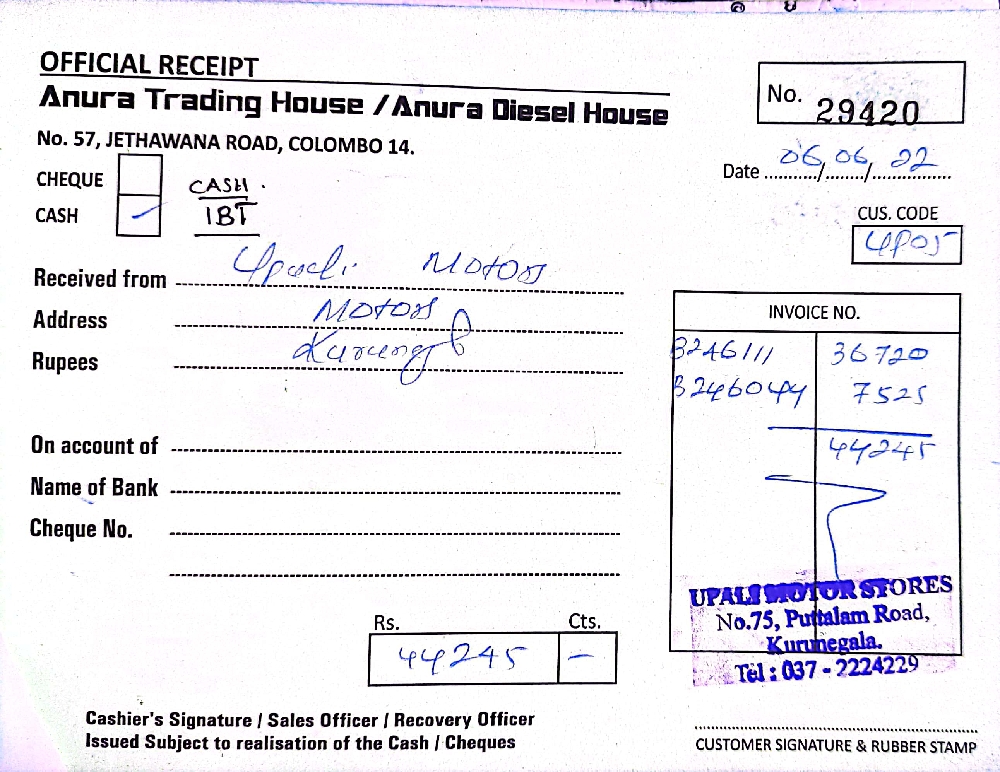 OFFICIAL RECEIPT
Anura Trading House / Anura Diesel House
No. 57, JETHAWANA ROAD, COLOMBO 14.
No. 29420
Date 06/06/22
CHEQUE
CASH
CASH.
IBT
CUS. CODE
UP05
Received from Upali Motors
Address Motors
Rupees
On account of
Name of Bank
Cheque No.
INVOICE NO.
B246111 36720
B246044 7525
44245
UPALI MOTOR STORES
No.75, Puttalam Road,
Kurunegala.
Tel : 037 - 2224229
Rs. Cts.
44245 –
Cashier's Signature / Sales Officer / Recovery Officer
Issued Subject to realisation of the Cash / Cheques
CUSTOMER SIGNATURE & RUBBER STAMP